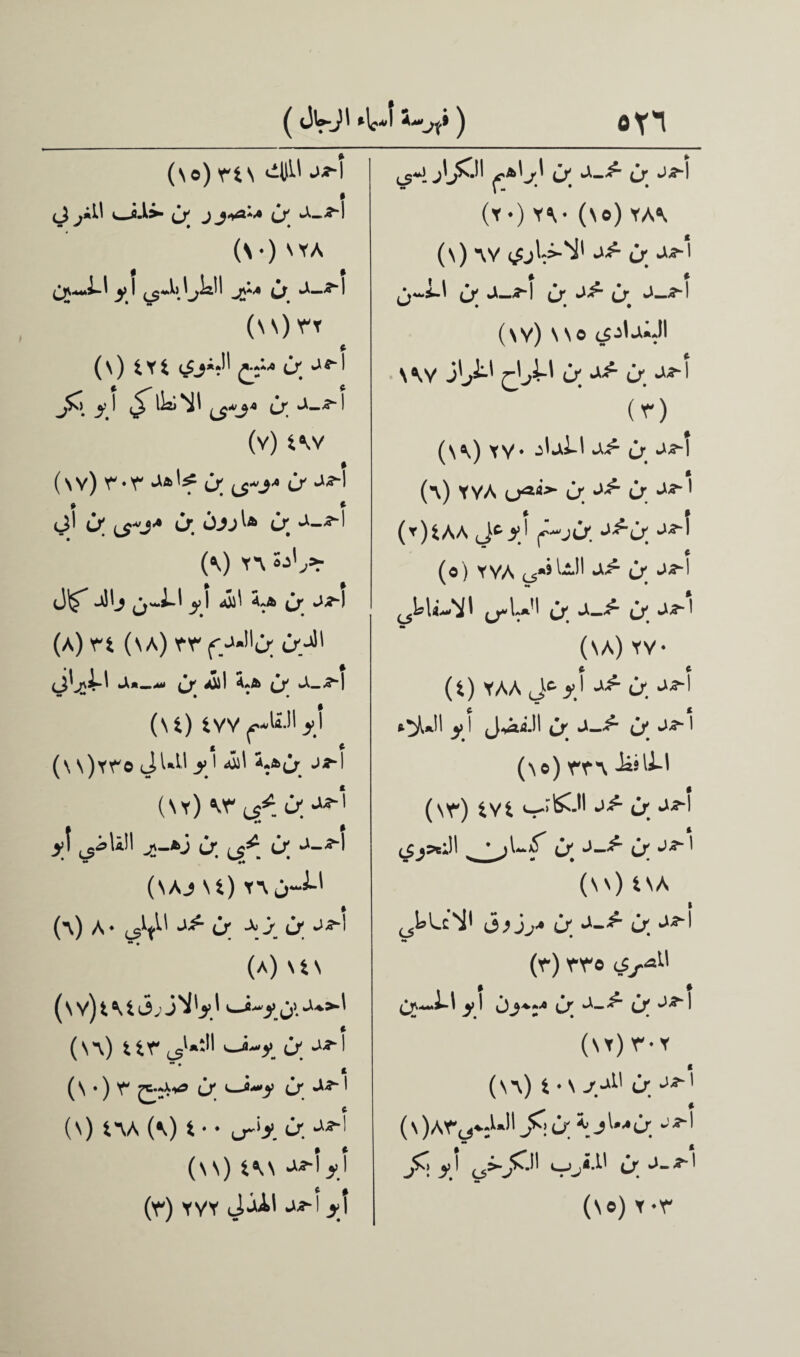 ٥٢٦ ( فهرسة أسماء الرجال )
أحمد بن محمد بن ابراهيم
٢٨٩ (١٥) ٢٩٠ (٢٠)
أحمد بن محمد الاخبارى ٦٧ (١)
أحمد بن محمد بن أحمد بن الحسن
البغدادى ١١٥ (١٧)
أحمد بن محمد بن الجراح الخزاز ١٩٧
(٣)
أحمد بن محمد الحداد ٢٧٠ (١٩)
أحمد بن محمد بن حفص ٢٧٨ (٦)
أحمد بن محمد بن أبو على ٤٨٨(٢)
أحمد بن محمد الشافعى ٢٧٨ (٥)
أحمد بن محمد بن العباس الاسفاطى
٢٧٠ (١٨)
أحمد بن محمد أبو على ٢٨٨ (٤)
أحمد بن محمد بن الفضل أبو العلاء
الحافظ ٣٣٦ (١٥)
أحمد بن محمد الكاتب ٤٧٤ (١٣)
أحمد بن محمد بن
٤١٨ (١١)
أحمد بن محمد بن مرزوق
المصرى ٣٣٥ (٣)
أحمد بن محمد بن ميمون أبو الحسين
٣٠٢ (١٢)
أحمد بن المدبر ٤٠١ (١٦)
أحمد بن بن بكر ٨٣(١)
أحمد بن المغرب الكرخى أبو بكر
٢٠٣ (١٥)
أحمد بن الملك ٣٤١ (١٥)
أحمد بن منصور بن خلف المغربى
١٢٨ (١٠)
أحمد بن منير الطرابلسى أبو الحسين
٣٢ (١١)
أحمد بن منيع البغوى ٤٢٤ (١)
أحمد بن موسى الانطاكى أبو بكر
٤٩٧ (٧)
أحمد بن موسى بن مجاهد ٣٠٣ (١٧)
أحمد بن هارون بن موسى بن أبى
جرادة ٢٦ (٩)
أحمد بن هبة الله أبو الحسن والد كمال
الدين بن العديم ٣٣ (١٨) ٣٤ (٨)
أحمد بن هبة الله بن سعد
أبو القاسم ٤٧٧ (١٤)
أحمد بن هبة الله أبو المعالى ٢٣٥(١١)
أحمد بن يحيى ٩٣ (١٢)
أحمد بن يحيى بن زهير القاضى أبو
الحسن ٢٦ (١٤ و ١٨)
أحمد بن يزيد بن محمد المهلبى ٨٠ (٦)
١٤١ (٨)
أحمد بن يوسف أبو الازرق ٤٩٤(١٧)
أحمد بن يوسف ٤٤٣ (١٦)
أحمد بن يوسف بن صبيح ٣ (١٠)
أحمد بن يونس ٤٠٠ (٩) ٤٦٨ (١)
أبو أحمد ٤٩١ (١١)
أبو أحمد ٢٧٢ (٣)